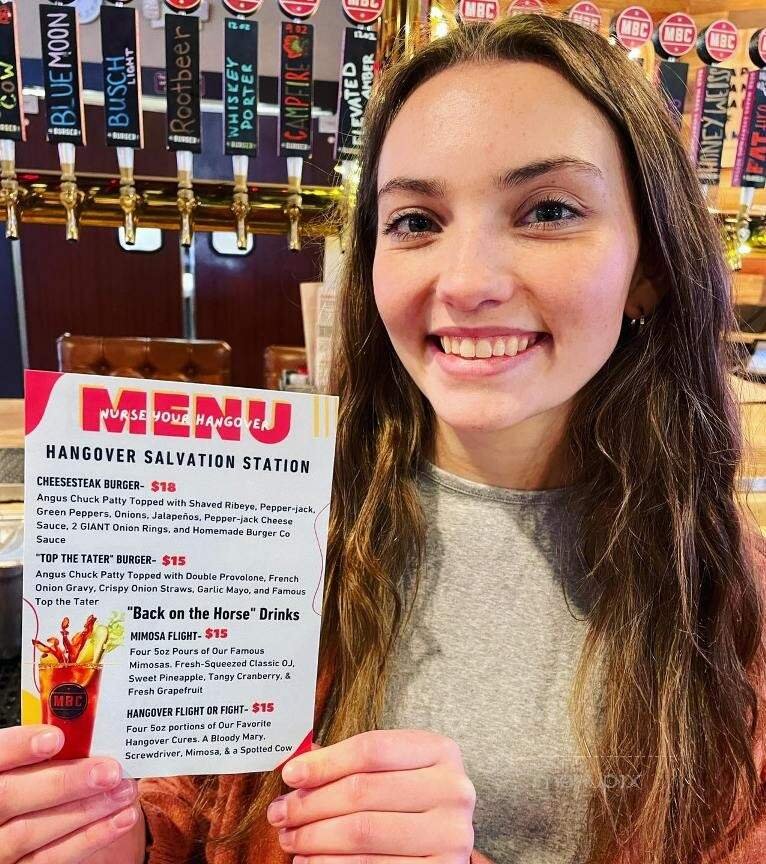 COW
BLUE MOON
BURGER
BUSCH
LIGHT
BURGER
Rootbeer
BURGER
12oz
WHISKEY
PORTER
BURGER
CAMPFIRE
BURGER
12oz
ELEVATED
AMBER
MBC
MBC
MBC
MBC
MBC
HONEY WEISS
MENU
NURSE YOUR HANGOVER
HANGOVER SALVATION STATION
CHEESESTEAK BURGER- $18
Angus Chuck Patty Topped with Shaved Ribeye, Pepper-jack,
Green Peppers, Onions, Jalapeños, Pepper-jack Cheese
Sauce, 2 GIANT Onion Rings, and Homemade Burger Co
Sauce
"TOP THE TATER" BURGER- $15
Angus Chuck Patty Topped with Double Provolone, French
Onion Gravy, Crispy Onion Straws, Garlic Mayo, and Famous
Top the Tater
"Back on the Horse" Drinks
MIMOSA FLIGHT- $15
Four 5oz Pours of Our Famous
Mimosas. Fresh-Squeezed Classic OJ,
Sweet Pineapple, Tangy Cranberry, &
Fresh Grapefruit
HANGOVER FLIGHT OR FIGHT- $15
Four 5oz portions of Our Favorite
Hangover Cures. A Bloody Mary,
Screwdriver, Mimosa, & a Spotted Cow
MBC